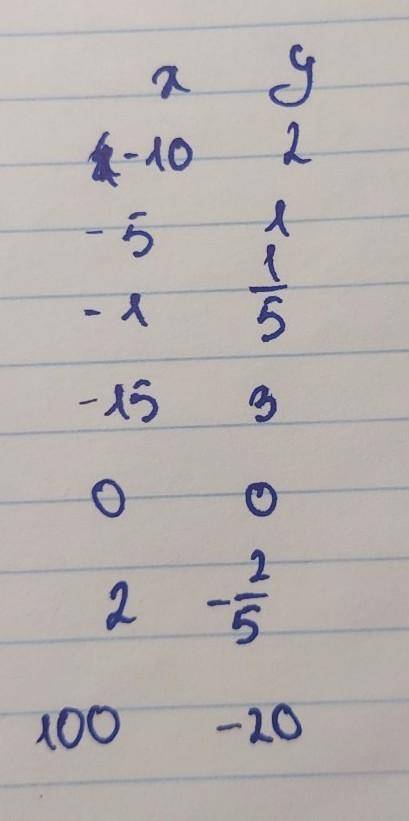 x y
-10 2
-5 1
-1 1/5
-15 3
0 0
2 -2/5
100 -20